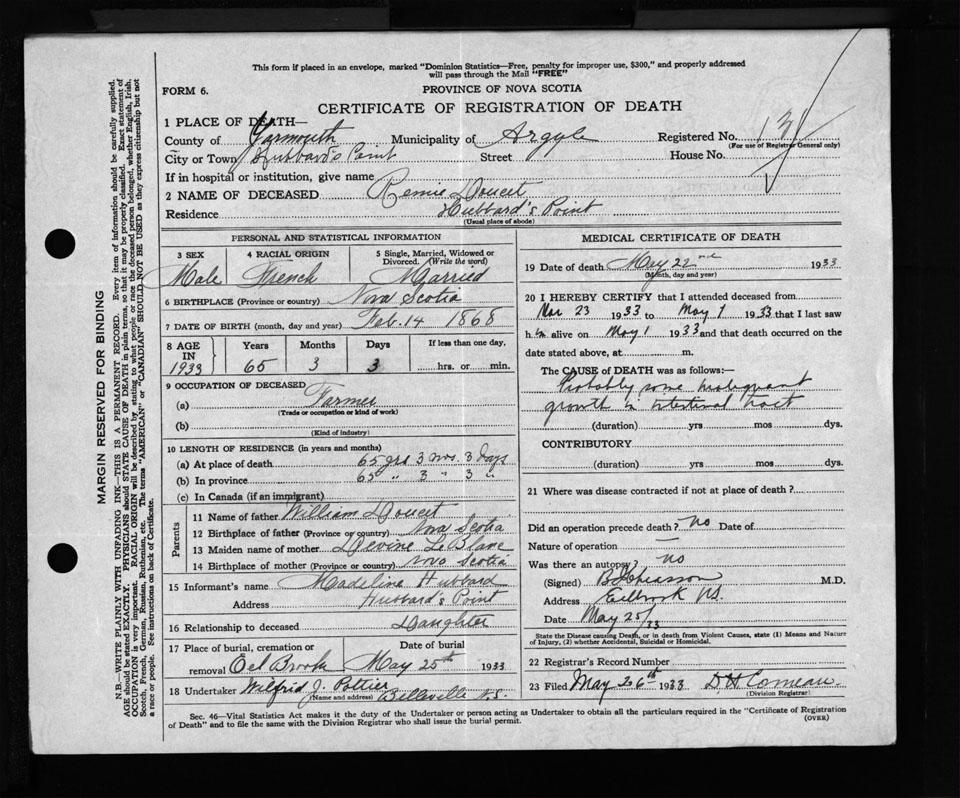 This form if placed in an envelope, marked "Dominion Statistics—Free, penalty for improper use, $300," and properly addressed
will pass through the Mail "FREE"
FORM 6.
PROVINCE OF NOVA SCOTIA
CERTIFICATE OF REGISTRATION OF DEATH
1 PLACE OF DEATH—
County of Yarmouth Municipality of Argyle Registered No. 131
(For use of Registrar General only)
City or Town Hubbard's Point Street House No.
If in hospital or institution, give name
2 NAME OF DECEASED Remie Doucet
Residence Hubbard's Point
(Usual place of abode)
PERSONAL AND STATISTICAL INFORMATION
3 SEX 4 RACIAL ORIGIN 5 Single, Married, Widowed or
Divorced. (Write the word)
Male French Married
6 BIRTHPLACE (Province or country) Nova Scotia
7 DATE OF BIRTH (month, day and year) Feb. 14 1868
8 AGE IN 1933 Years 65 Months 3 Days 3 If less than one day,
hrs. or min.
9 OCCUPATION OF DECEASED
(a) Farmer
(Trade or occupation or kind of work)
(b)
(Kind of industry)
10 LENGTH OF RESIDENCE (in years and months)
(a) At place of death 65 yrs 3 mos. 3 Days
(b) In province 65 " 3 " 3 "
(c) In Canada (if an immigrant)
Parents
11 Name of father William Doucet
12 Birthplace of father (Province or country) Nova Scotia
13 Maiden name of mother LeBlanc
14 Birthplace of mother (Province or country) Nova Scotia
15 Informant's name Madeline Hubbard
Address Hubbard's Point
16 Relationship to deceased Daughter
17 Place of burial, cremation or Date of burial
removal Eel Brook May 25th 1933
18 Undertaker Wilfrid J. Pottier Belleville N.S.
(Name and address)
MEDICAL CERTIFICATE OF DEATH
19 Date of death May 22nd 1933
(Month, day and year)
20 I HEREBY CERTIFY that I attended deceased from
Mar 23 1933 to May 1 1933 that I last saw
h im alive on May 1 1933 and that death occurred on the
date stated above, at m.
The CAUSE of DEATH was as follows:—
Probably some malignant
growth in intestinal tract
(duration) yrs mos dys.
CONTRIBUTORY
(duration) yrs mos dys.
21 Where was disease contracted if not at place of death?
Did an operation precede death? No Date of
Nature of operation —
Was there an autopsy? No
(Signed) M.D.
Address Eelbrook NS.
Date May 25/33
State the Disease causing Death, or in death from Violent Causes, state (1) Means and Nature
of Injury, (2) whether Accidental, Suicidal or Homicidal.
22 Registrar's Record Number
23 Filed May 26th 1933 D H Comeau.
(Division Registrar)
Sec. 46—Vital Statistics Act makes it the duty of the Undertaker or person acting as Undertaker to obtain all the particulars required in the "Certificate of Registration
of Death" and to file the same with the Division Registrar who shall issue the burial permit.
(OVER)
MARGIN RESERVED FOR BINDING
N.B.—WRITE PLAINLY WITH UNFADING INK—THIS IS A PERMANENT RECORD. Every item of information should be carefully supplied.
AGE should be stated EXACTLY. PHYSICIANS should STATE CAUSE OF DEATH in plain terms, so that it may be properly classified. Exact statement of
OCCUPATION is very important. RACIAL ORIGIN will be described by stating to what people or race the deceased person belonged, whether English, Irish,
Scotch, French, German, Russian, Ruthenian, etc. The terms "AMERICAN" or "CANADIAN" SHOULD NOT BE USED as they express citizenship but not
a race or people. See instructions on back of Certificate.